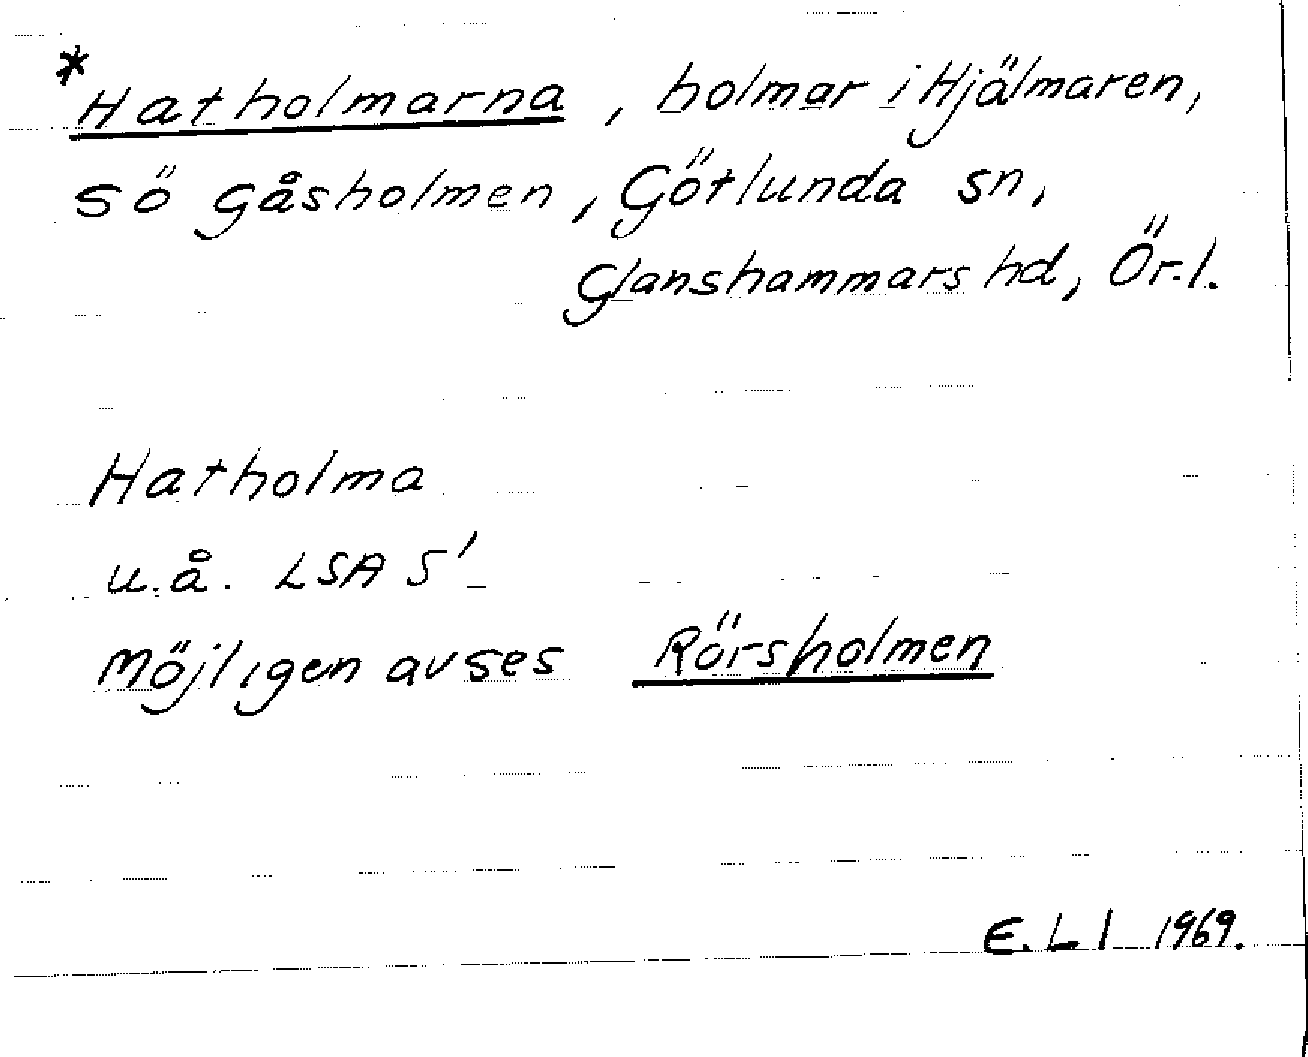 *Hatholmarna, holmar i Hjälmaren,
sö Gåsholmen, Götlunda sn,
Glanshammars hd, Ör.l.
Hatholma
u.å. LSA S'
Möjligen avses Rörsholmen
E. L l 1969.